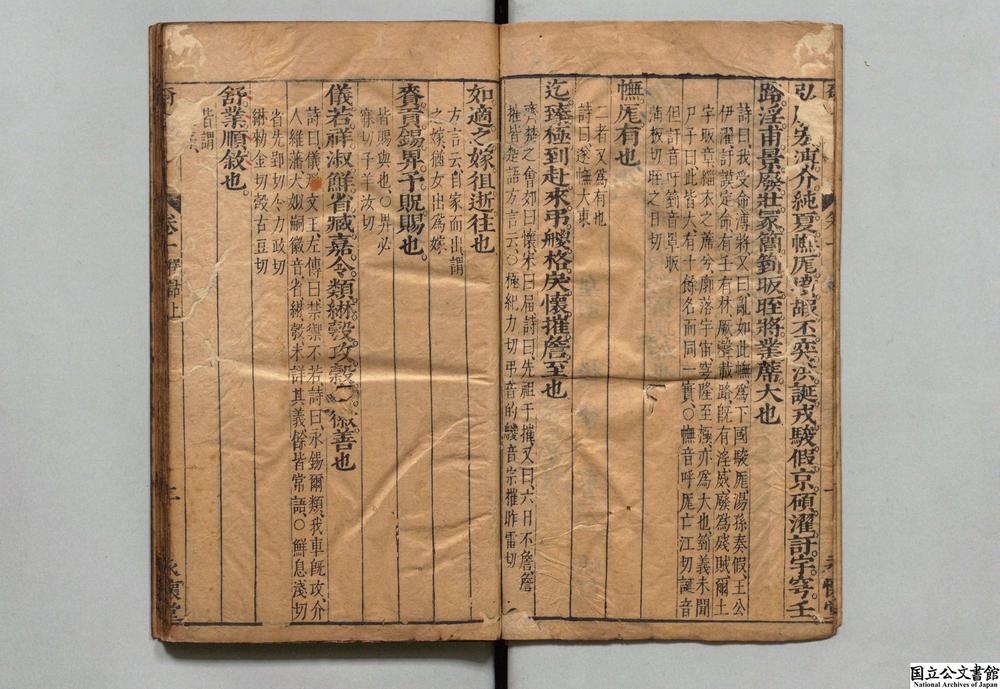 弘宏溥介純夏幠厖嘏丕奕洪誕戎駿假京碩濯訏宇穹壬
路淫甫景廢壯冢簡箌昄晊將業蓆大也
詩曰我受命溥將又曰亂如此幠為下國駿厖湯孫奏假王公
伊濯訏謨定命有壬有林厥聲載路既有淫威廢為殘賊爾土
宇昄章緇衣之蓆兮廓落宇宙穹隆至極亦為大也箌義未聞
尸子曰此皆大有十餘名而同一實○幠音呼厖亡江切誕音
但訏音吁箌音罩昄
蒲板切晊之日切
幠厖有也
二者又為有也
詩曰遂幠大東
迄臻極到赴來弔艐格戾懷摧詹至也
齊楚之會郊曰懷宋曰屆詩曰先祖于摧又曰六日不詹詹
摧皆楚語方言云○極紀力切弔音的艐音宗摧昨雷切
如適之嫁徂逝往也
方言云自家而出謂
之嫁猶女出為嫁
賚貢錫畀予貺賜也
皆賜與也○畀必
寐切予羊汝切
儀若祥淑鮮省臧嘉令類綝彀攻穀介徽善也
詩曰儀刑文王左傳曰禁禦不若詩曰永錫爾類我車既攻介
人維藩大姒嗣徽音省綝彀未詳其義餘皆常語○鮮息淺切
省先郢切令力政切
綝勑金切彀古豆切
舒業順敘也
皆謂
卷一釋詁上
二
永懷堂
国立公文書館
National Archives of Japan